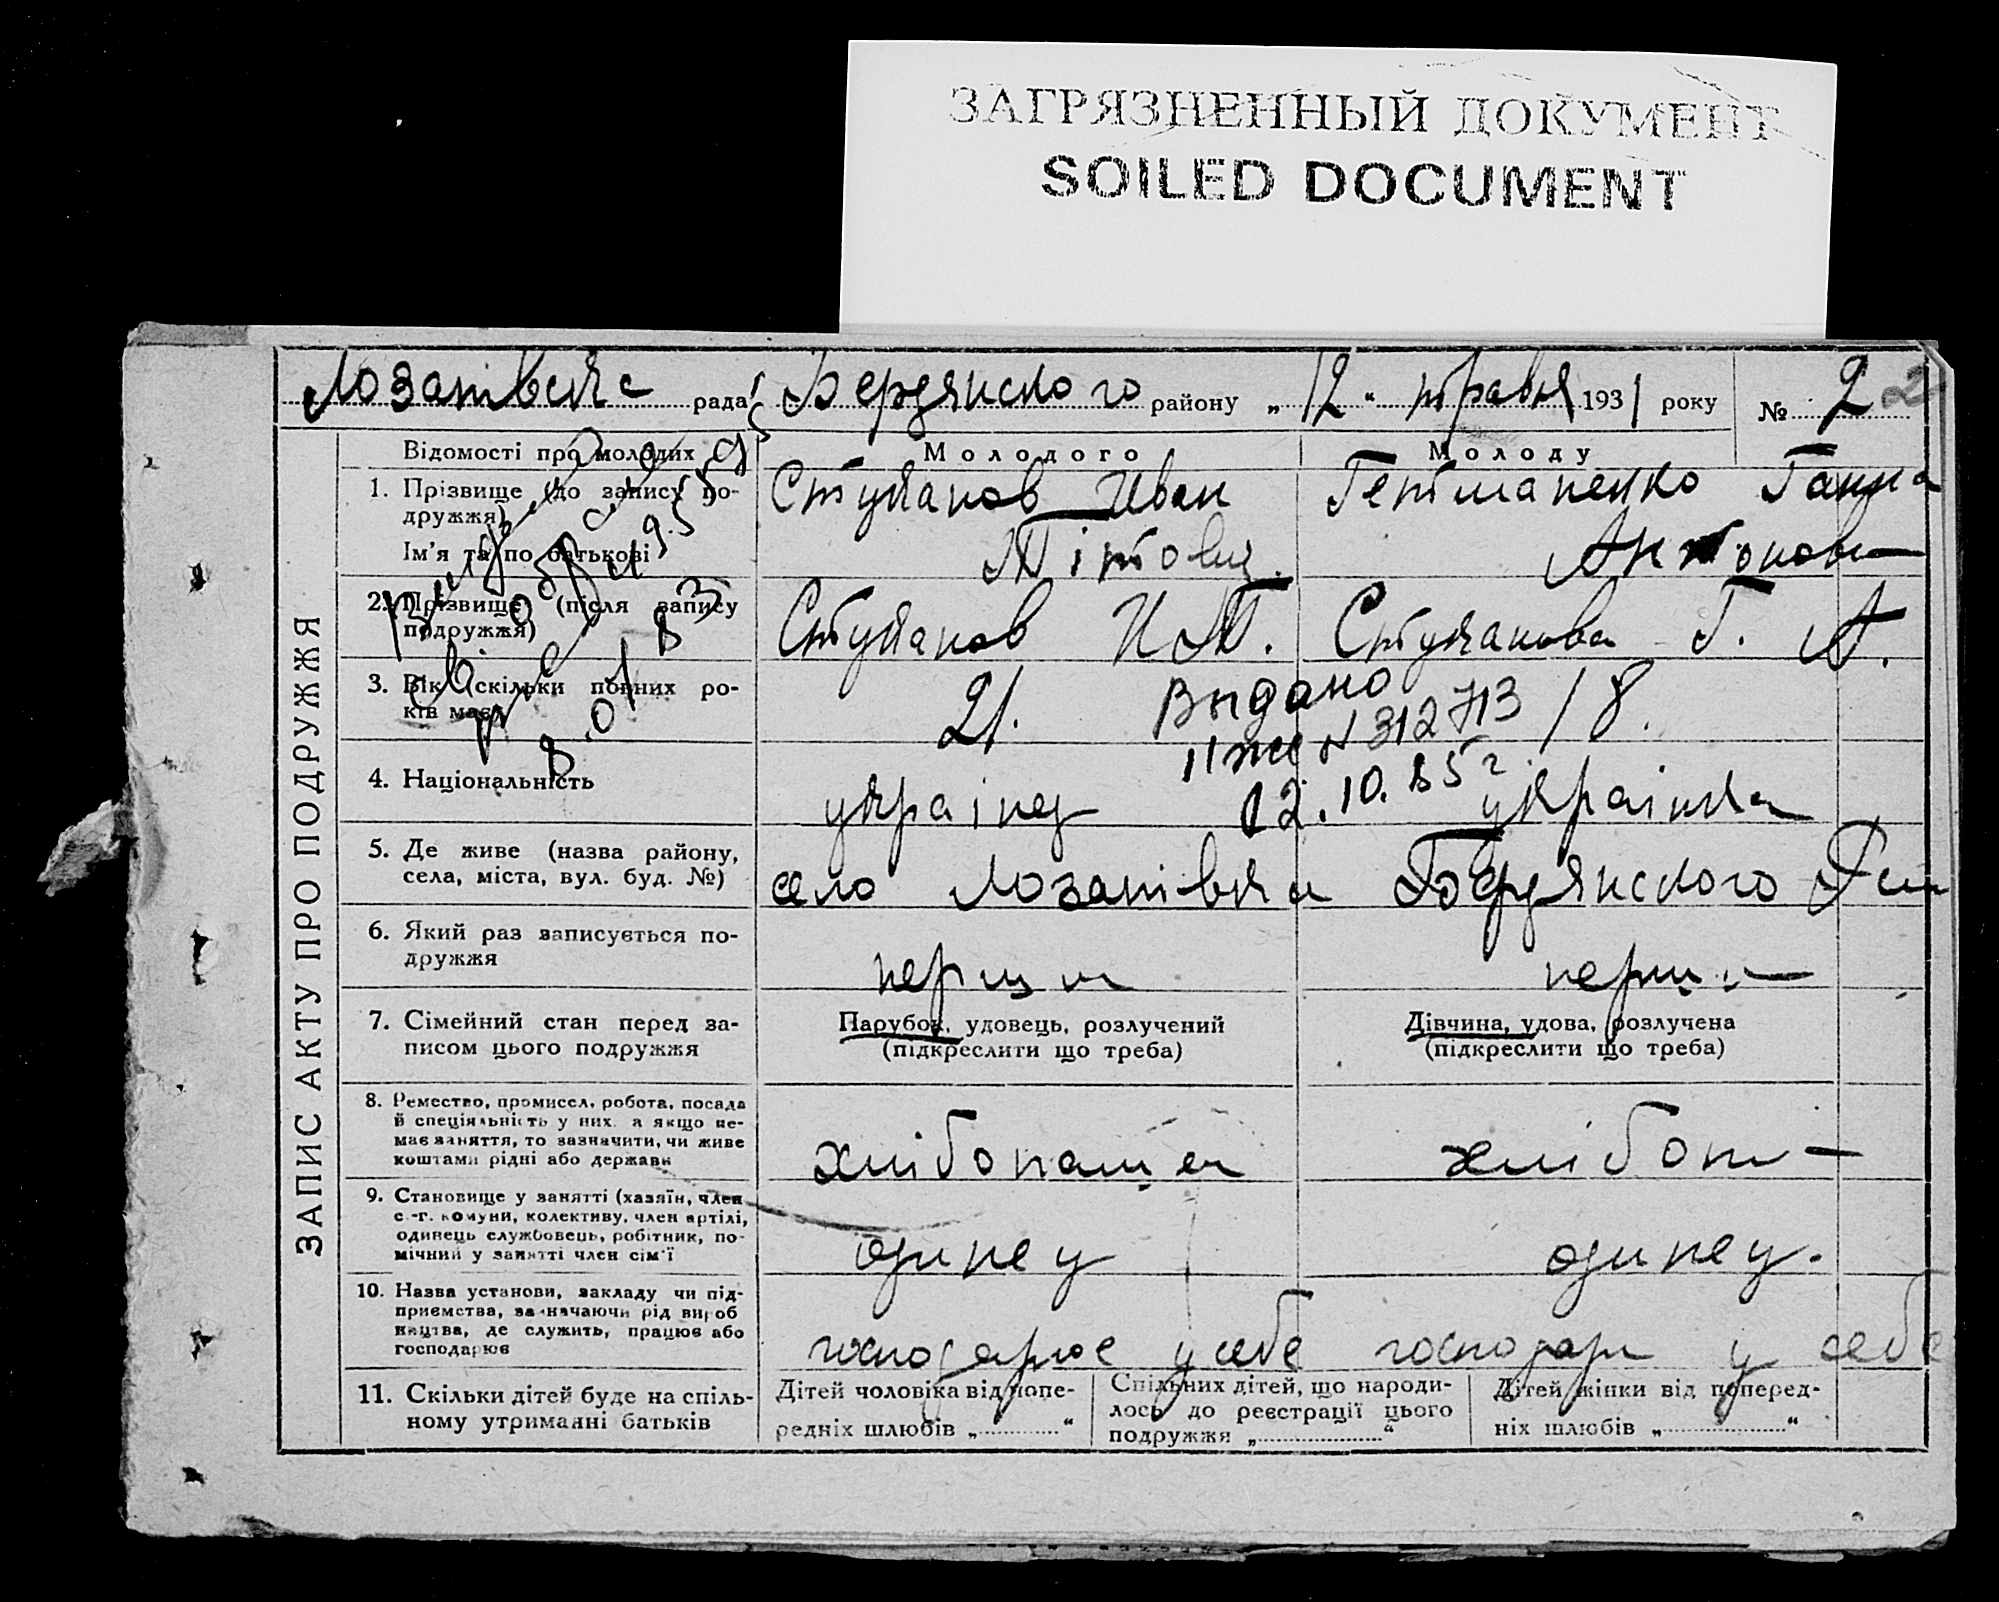 ЗАГРЯЗНЕННЫЙ ДОКУМЕНТ
SOILED DOCUMENT
Лозатівська рада Бердянского району „12“ травня 1931 року № 2
ЗАПИС АКТУ ПРО ПОДРУЖЖЯ
Відомості про молодих Молодого Молоду
1. Прізвище (до запису по-
дружжя)
Ім'я та по батькові
Ступаков Иван
Тітович
Гетманенко Ганна
Антонов
2. Прізвище (після запису
подружжя)
Ступаков И. Т. Ступакова Г. А.
3. Вік (скільки повних ро-
ків має)
21. 18.
Выдано
II ЖС N 312713
12.10.85 г.
8.01.83
4. Національність
українец українка
5. Де живе (назва району,
села, міста, вул. буд. №)
село Лозатівка Бердянского
6. Який раз записується по-
дружжя
перши перши
7. Сімейний стан перед за-
писом цього подружжя
Парубок, удовець, розлучений
(підкреслити що треба)
Дівчина, удова, розлучена
(підкреслити що треба)
8. Ремество, промисел, робота, посада
й спеціяльність у них, а якщо не-
має заняття, то зазначити, чи живе
коштами рідні або держави
хлібопашец хлібоп
9. Становище у занятті (хазяїн, член
с.-г. комуни, колективу, член артілі,
одинець службовець, робітник, по-
мічний у занятті член сім'ї
одинец одинец.
10. Назва установи, закладу чи під-
приємства, зазначаючи рід вироб
ництва, де служить, працює або
господарює
господарює у себе господари у себе
11. Скільки дітей буде на спіль-
ному утриманні батьків
Дітей чоловіка від попе-
редніх шлюбів „ “
Спільних дітей, що народи-
лось до реєстрації цього
подружжя „ “
Дітей жінки від поперед-
ніх шлюбів „ “